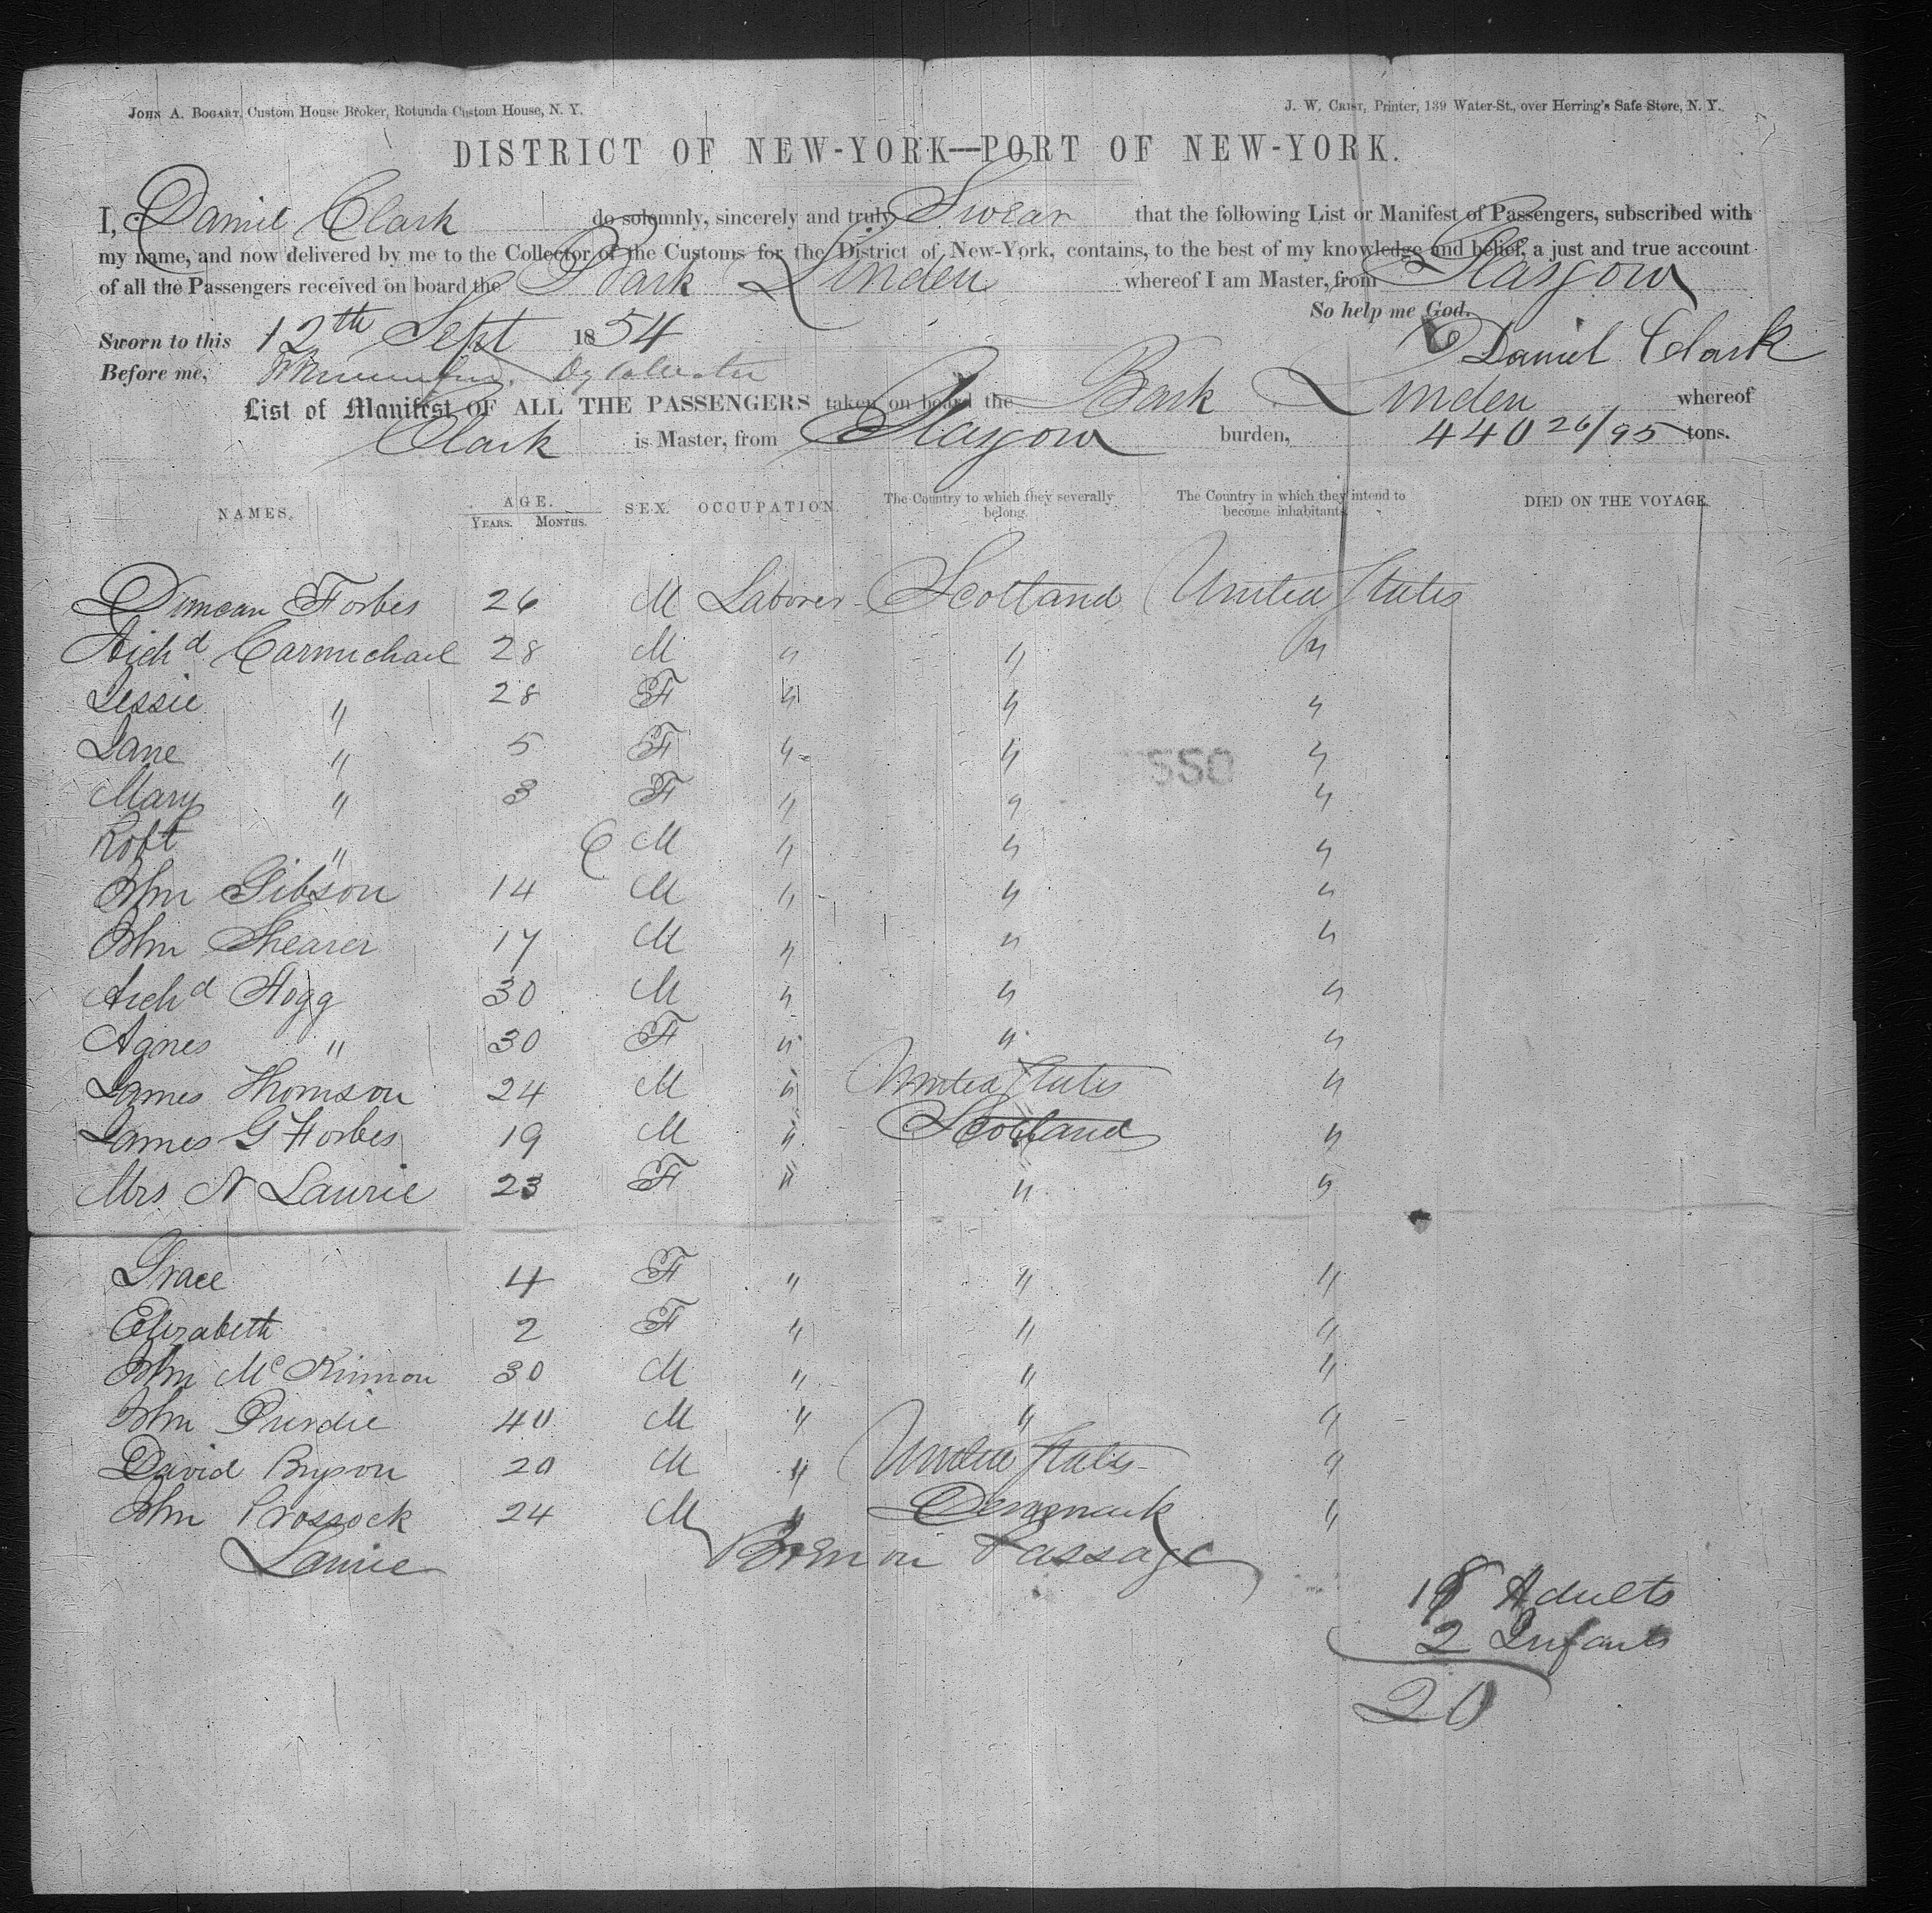 JOHN A. BOGART, Custom House Broker, Rotunda Custom House, N. Y.
J. W. CRIST, Printer, 139 Water-St., over Herring's Safe Store, N. Y.
DISTRICT OF NEW-YORK—PORT OF NEW-YORK.
I, Daniel Clark do solemnly, sincerely and truly Swear that the following List or Manifest of Passengers, subscribed with
my name, and now delivered by me to the Collector of the Customs for the District of New-York, contains, to the best of my knowledge and belief, a just and true account
of all the Passengers received on board the Bark Linden whereof I am Master, from Glasgow
So help me God.
Sworn to this 12th Sept 1854
Daniel Clark
Before me, Dy Collector
List of Manifest OF ALL THE PASSENGERS taken on board the Bark Linden whereof
Clark is Master, from Glasgow burden, 440 26/95 tons.
NAMES. AGE. SEX. OCCUPATION. The Country to which they severally belong. The Country in which they intend to become inhabitants. DIED ON THE VOYAGE.
YEARS. MONTHS.
Duncan Forbes 26 M Laborer Scotland United States
Archd Carmichael 28 M " " "
Jessie " 28 F " " "
Jane " 5 F " " "
550
Mary " 3 F " " "
Robt " 6 M " " "
John Gibson 14 M " " "
John Shearer 17 M " " "
Archd Hogg 30 M " " "
Agnes " 30 F " " "
James Thomson 24 M " United States "
James G Forbes 19 M " Scotland "
Mrs N Laurie 23 F " " "
Grace 4 F " " "
Elizabeth 2 F " " "
John McKinnon 30 M " " "
John Purdie 40 M " " "
David Bryson 20 M " United States "
John Brossock 24 M " Denmark "
Laurie Born on Passage
18 Adults
2 Infants
20